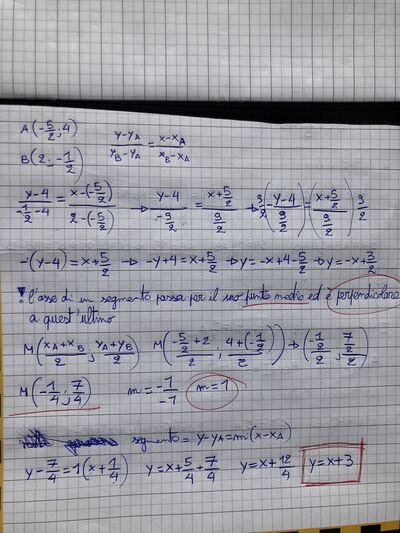 A(-5/2; 4) (y-yA)/(yB-yA) = (x-xA)/(xB-xA)
B(2; -1/2)
(y-4)/(-1/2-4) = (x-(-5/2))/(2-(-5/2)) → (y-4)/(-9/2) = (x+5/2)/(9/2) → 9/2 (-(y-4)/(9/2)) = ((x+5/2)/(9/2)) 9/2
-(y-4) = x+5/2 → -y+4 = x+5/2 → y = -x+4-5/2 → y = -x+3/2
! l'asse di un segmento passa per il suo punto medio ed è perpendicolare
a quest'ultimo
M((xA+xB)/2; (yA+yB)/2) M((-5/2+2)/2; (4+(-1/2))/2) → ((-1/2)/2; (7/2)/2)
M(-1/4; 7/4) m = -1/-1 m = 1
segmento = y-yA = m(x-xA)
y-7/4 = 1(x+1/4) y = x+5/4+7/4 y = x+12/4 y = x+3